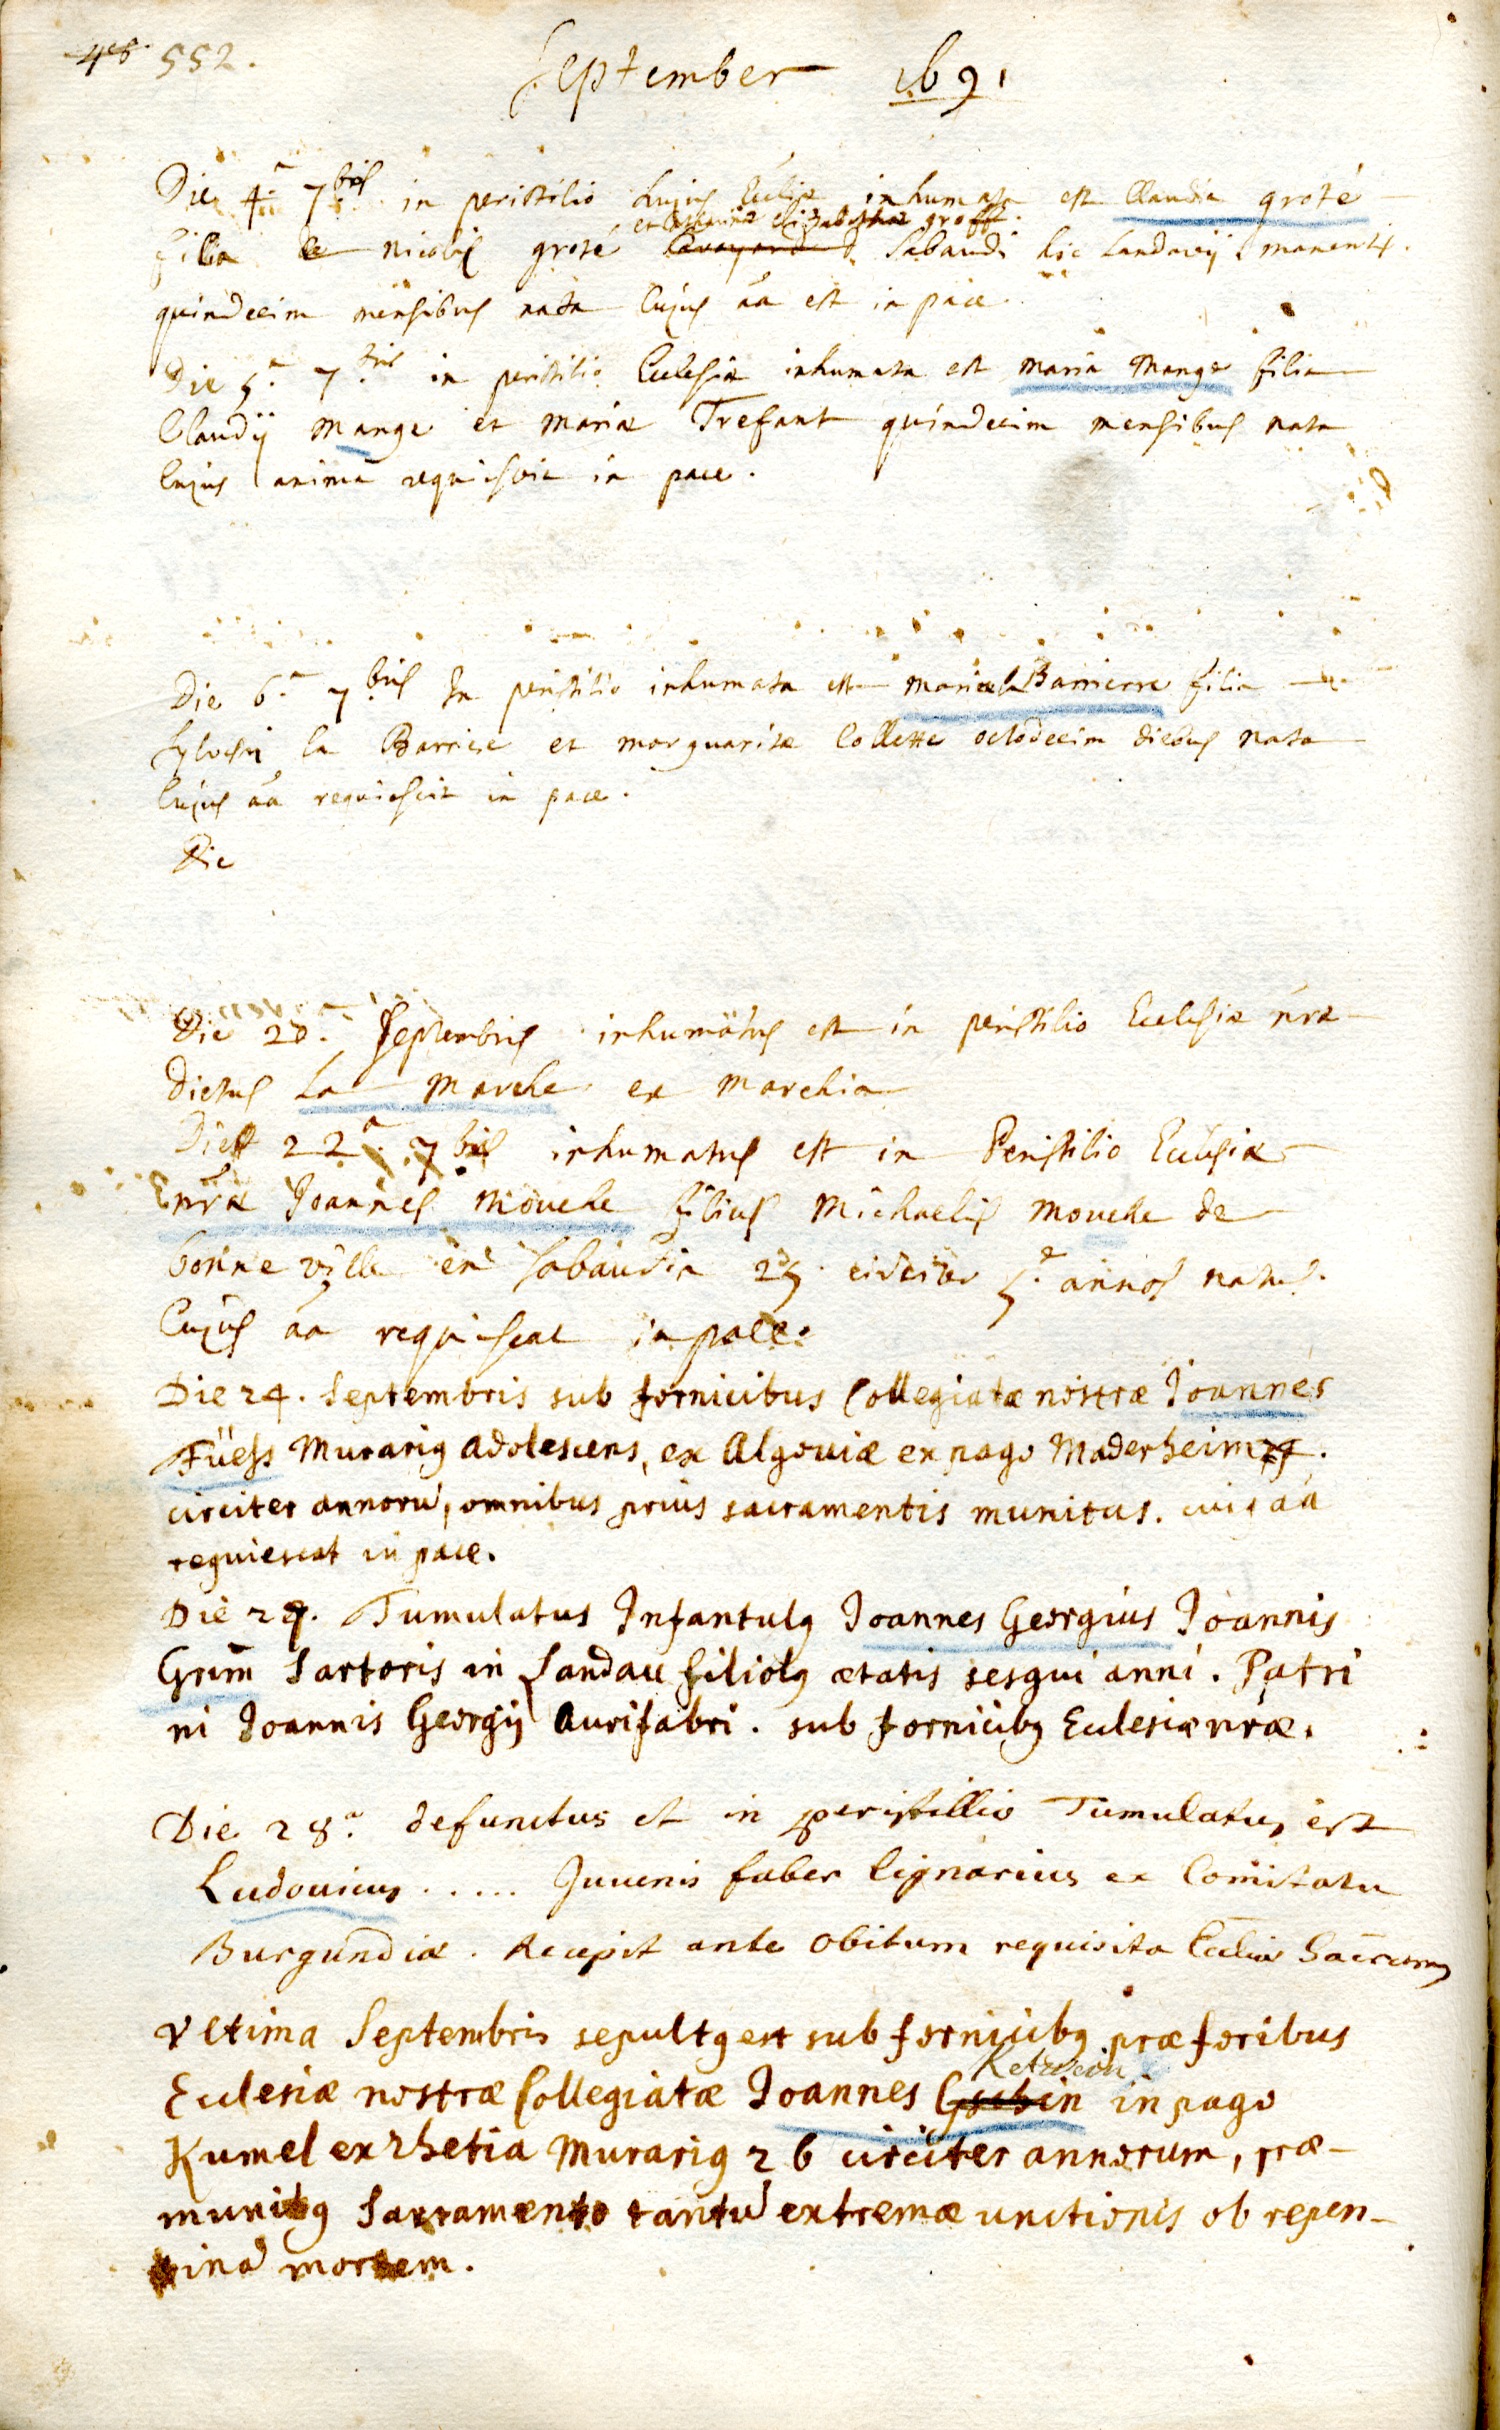 552.
September 1691
Die 4.a 7bris in peristilio hujus Eccliæ inhumata est Claudia groté
et Catharinæ Elizabethæ groff.
filia Nicolis groté Sabaudi hic Landavij manentis.
quindecim mensibus nata Cujus aa est in pace
Die 5.a 7bris in peristilio Ecclesiæ inhumata est maria Mange filia
Claudij Mange et mariæ Trefant quindecim mensibus nata
Cujus anima requiescit in pace.
Die 6.a 7bris In peristilio inhumata est maria la Barrierre filia
Sylvestri la Barriere et marguaritæ Collette octodecim diebus nata
Cujus aa requiescit in pace.
Die
Die 20.a Septembris inhumatus est in peristilio Ecclesiæ nræ
Dictus La Marche ex Marchia
Die 22.a 7bris inhumatus est in Peristilio Ecclesiæ
nræ Joannes Mouche filius Michaelis Mouche de
bonne ville in Sabaudia circiter annos natus.
Cujus aa requiescat in pace.
Die 24. Septembris sub fornicibus Collegiatæ nostræ Joannes
Füess Murarig adolescens, ex Algoviæ ex pago Maderheim
circiter annorū, omnibus prius sacramentis munitus. cuig aa
requiescat in pace.
Die 27. Tumulatus Infantulg Joannes Georgius Joannis
Grim̄ Sartoris in Landau filiolg ætatis sesqui anni. Patri
ni Joannis Georgij Aurifabri. sub fornicibg Ecclesiæ nræ.
Die 28.a defunctus et in peristillio Tumulatus est
Ludovicus ..... Juvenis faber lignarius ex Comitatu
Burgundiæ. Recepit ante obitum requisita Eccliæ Sacram
Vltima Septembris sepultg est sub fornicibg præ foribus
Ketzwin
Ecclesiæ nostræ Collegiatæ Joannes Gschin in pago
Kumel ex rhetia Murarig 26 circiter annorum, præ-
munitg Sacramento tantū extremæ unctionis ob repen-
tinā mortem.